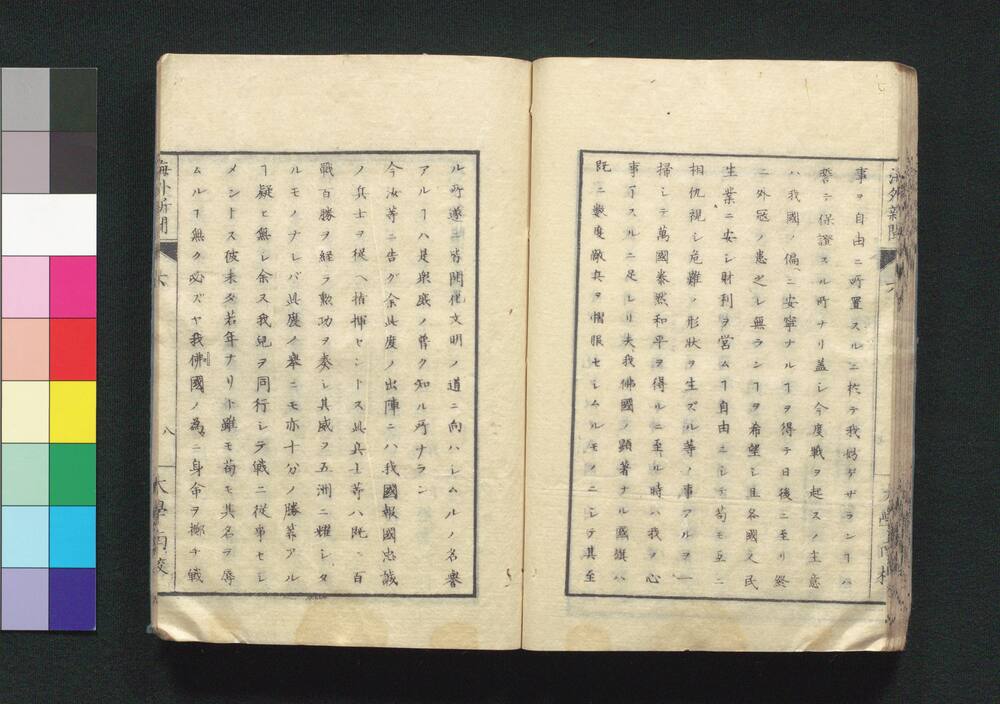 事ヲ自由ニ所置スルニ於テ我妨ゲザランヿハ
誓ニ保證スル所ナリ蓋シ今度戰ヲ起スノ主意
ハ我國ノ偏ニ安寧ナルヿヲ得テ日後ニ至リ終
ニ外冦ノ患之レ無ランヿヲ希望シ且各國又民
生業ニ安シ財利ヲ営ムヿ自由ニシテ苟モ互ニ
相仇視シ危難ノ形狀ヲ生ズル等ノ事アルヲ一
掃シテ萬國泰然和平ヲ得ルニ至ル時ハ我ノ心
事了スルニ足レリ夫我佛國ノ顕著ナル國旗ハ
既ニ數度敵兵ヲ慴服セシムルモノニシテ其至
ル所遂ニ皆開化文明ノ道ニ向ハシムルノ名譽
アルヿハ是衆感ノ曽ク知ル所ナラン
今汝等ニ告グ余此度ノ出陣ニハ我國報國忠誠
ノ兵士ヲ従ヘ指揮セントス此兵士等ハ既ニ百
戰百勝ヲ経ラ勲功ヲ奏シ其威ヲ五洲ニ耀シタ
ルモノナレバ此度ノ舉ニモ亦十分ノ勝算アル
ヿ疑ヒ無シ余ス我兒ヲ同行シラ戰ニ従事セシ
メントス彼未タ若年ナリト雖モ苟モ其名ヲ辱
ムルヿ無ク必ズヤ我佛國ノ為ニ身命ヲ擲チ戰
海外新聞
六
八
大學南校